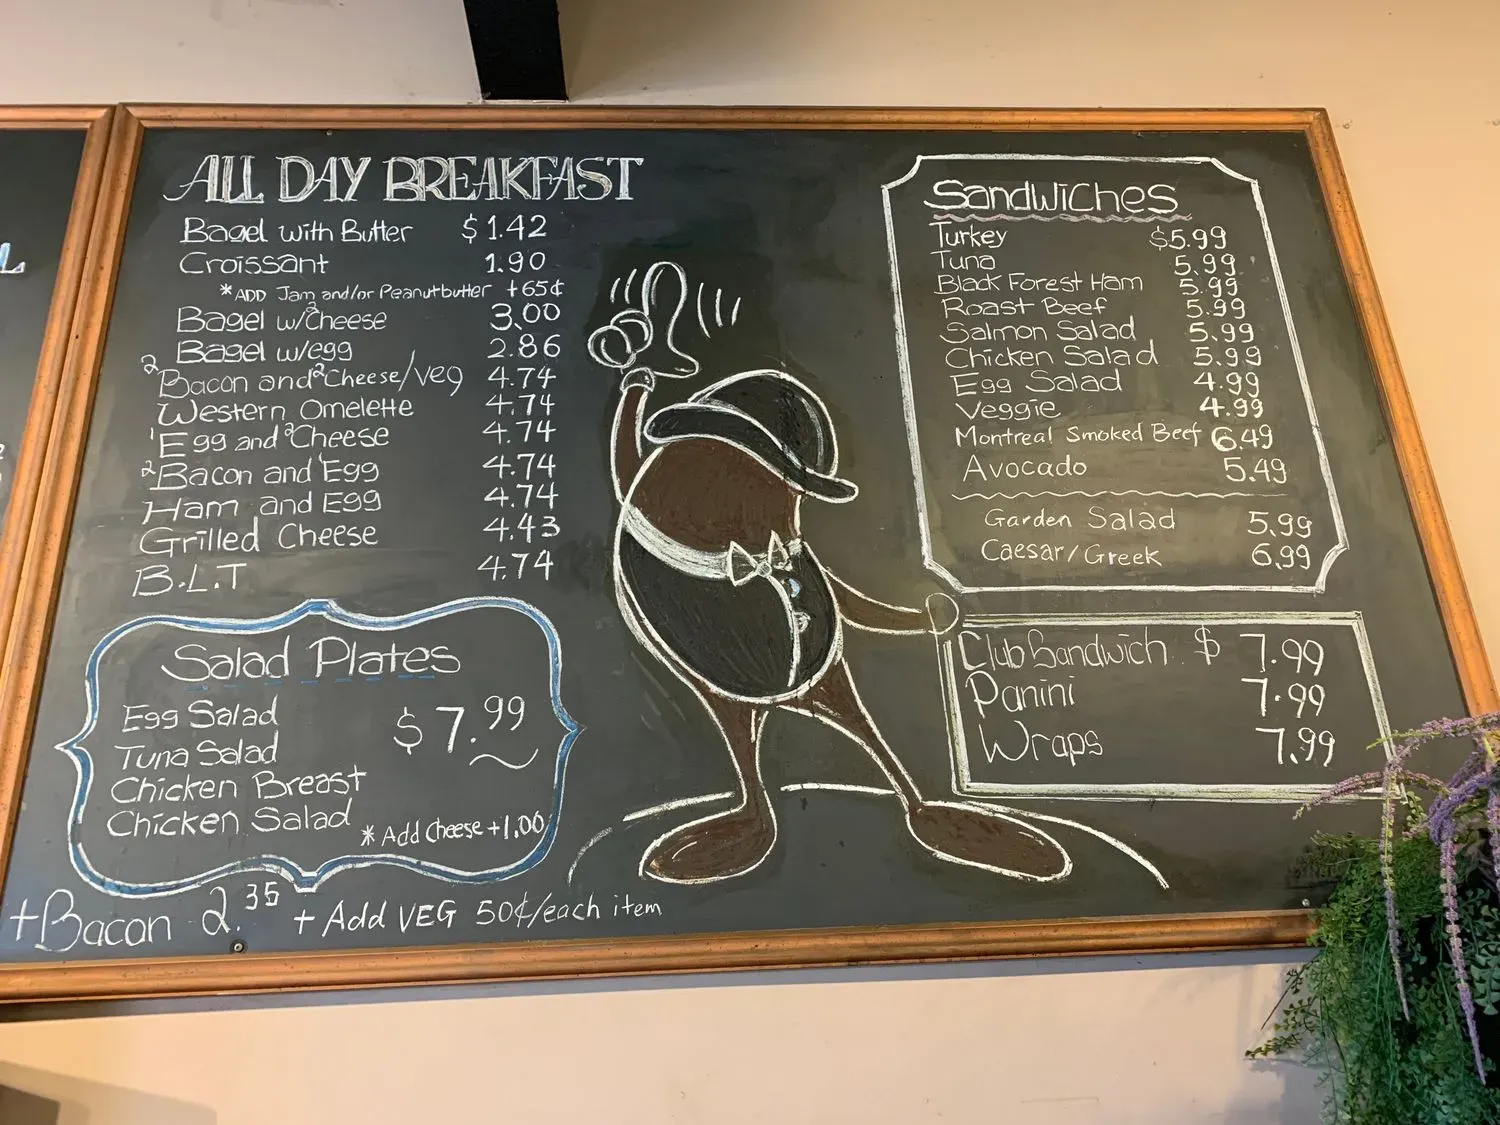 ALL DAY BREAKFAST
Bagel with Butter $1.42
Croissant 1.90
*ADD Jam and/or Peanutbutter +65¢
Bagel w/2cheese 3.00
Bagel w/egg 2.86
2 Bacon and 2 Cheese/veg 4.74
Western Omelette 4.74
1 Egg and 2 Cheese 4.74
2 Bacon and 1 Egg 4.74
Ham and Egg 4.74
Grilled Cheese 4.43
B.L.T 4.74
Salad Plates
Egg Salad
Tuna Salad
Chicken Breast
Chicken Salad
$7.99
*Add Cheese +1.00
+Bacon 2.35 + Add VEG 50¢/each item
Sandwiches
Turkey $5.99
Tuna 5.99
Black Forest Ham 5.99
Roast Beef 5.99
Salmon Salad 5.99
Chicken Salad 5.99
Egg Salad 4.99
Veggie 4.99
Montreal Smoked Beef 6.49
Avocado 5.49
Garden Salad 5.99
Caesar/Greek 6.99
Club Sandwich $7.99
Panini 7.99
Wraps 7.99